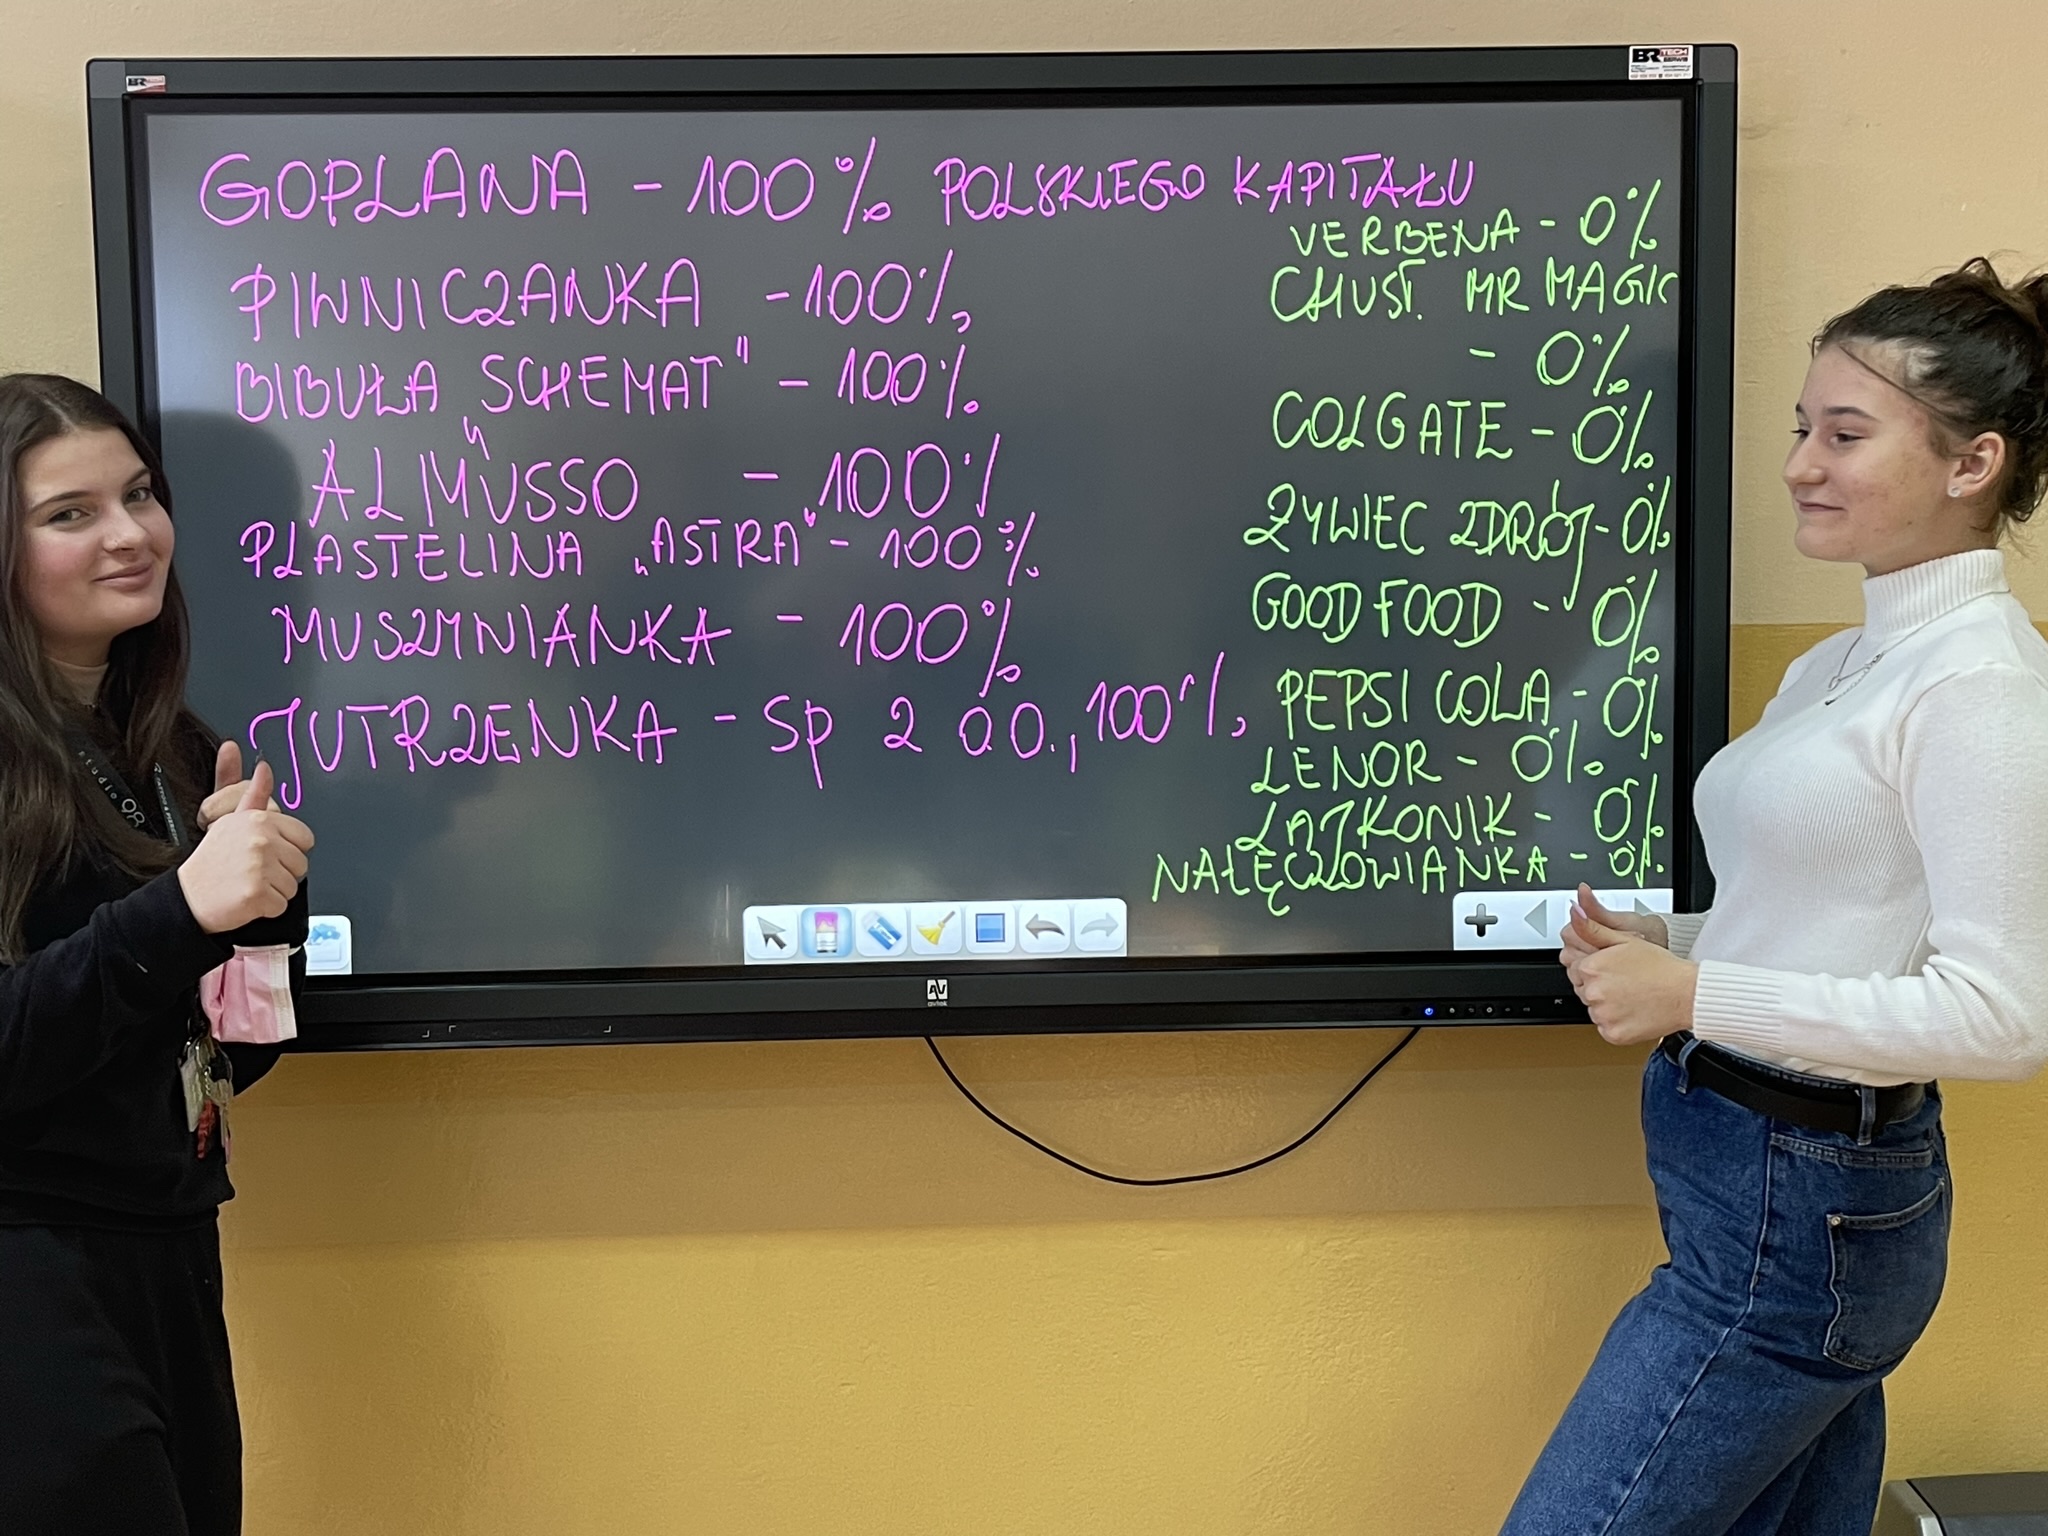 BR TECH
BR TECH SERWIS
GOPLANA - 100% POLSKIEGO KAPITAŁU
PIWNICZANKA - 100%
BIBUŁA „SCHEMAT" - 100%
ALMUSSO - 100%
PLASTELINA „ASTRA" - 100%
MUSZYNIANKA - 100%
JUTRZENKA - SP Z O.O., 100%
VERBENA - 0%
CHUST. MR MAGIC
- 0%
COLGATE - 0%
ŻYWIEC ZDRÓJ - 0%
GOOD FOOD - 0%
PEPSI COLA - 0%
LENOR - 0%
LAJKONIK - 0%
NAŁĘCZOWIANKA - 0%
AV
avtek
PC
studio